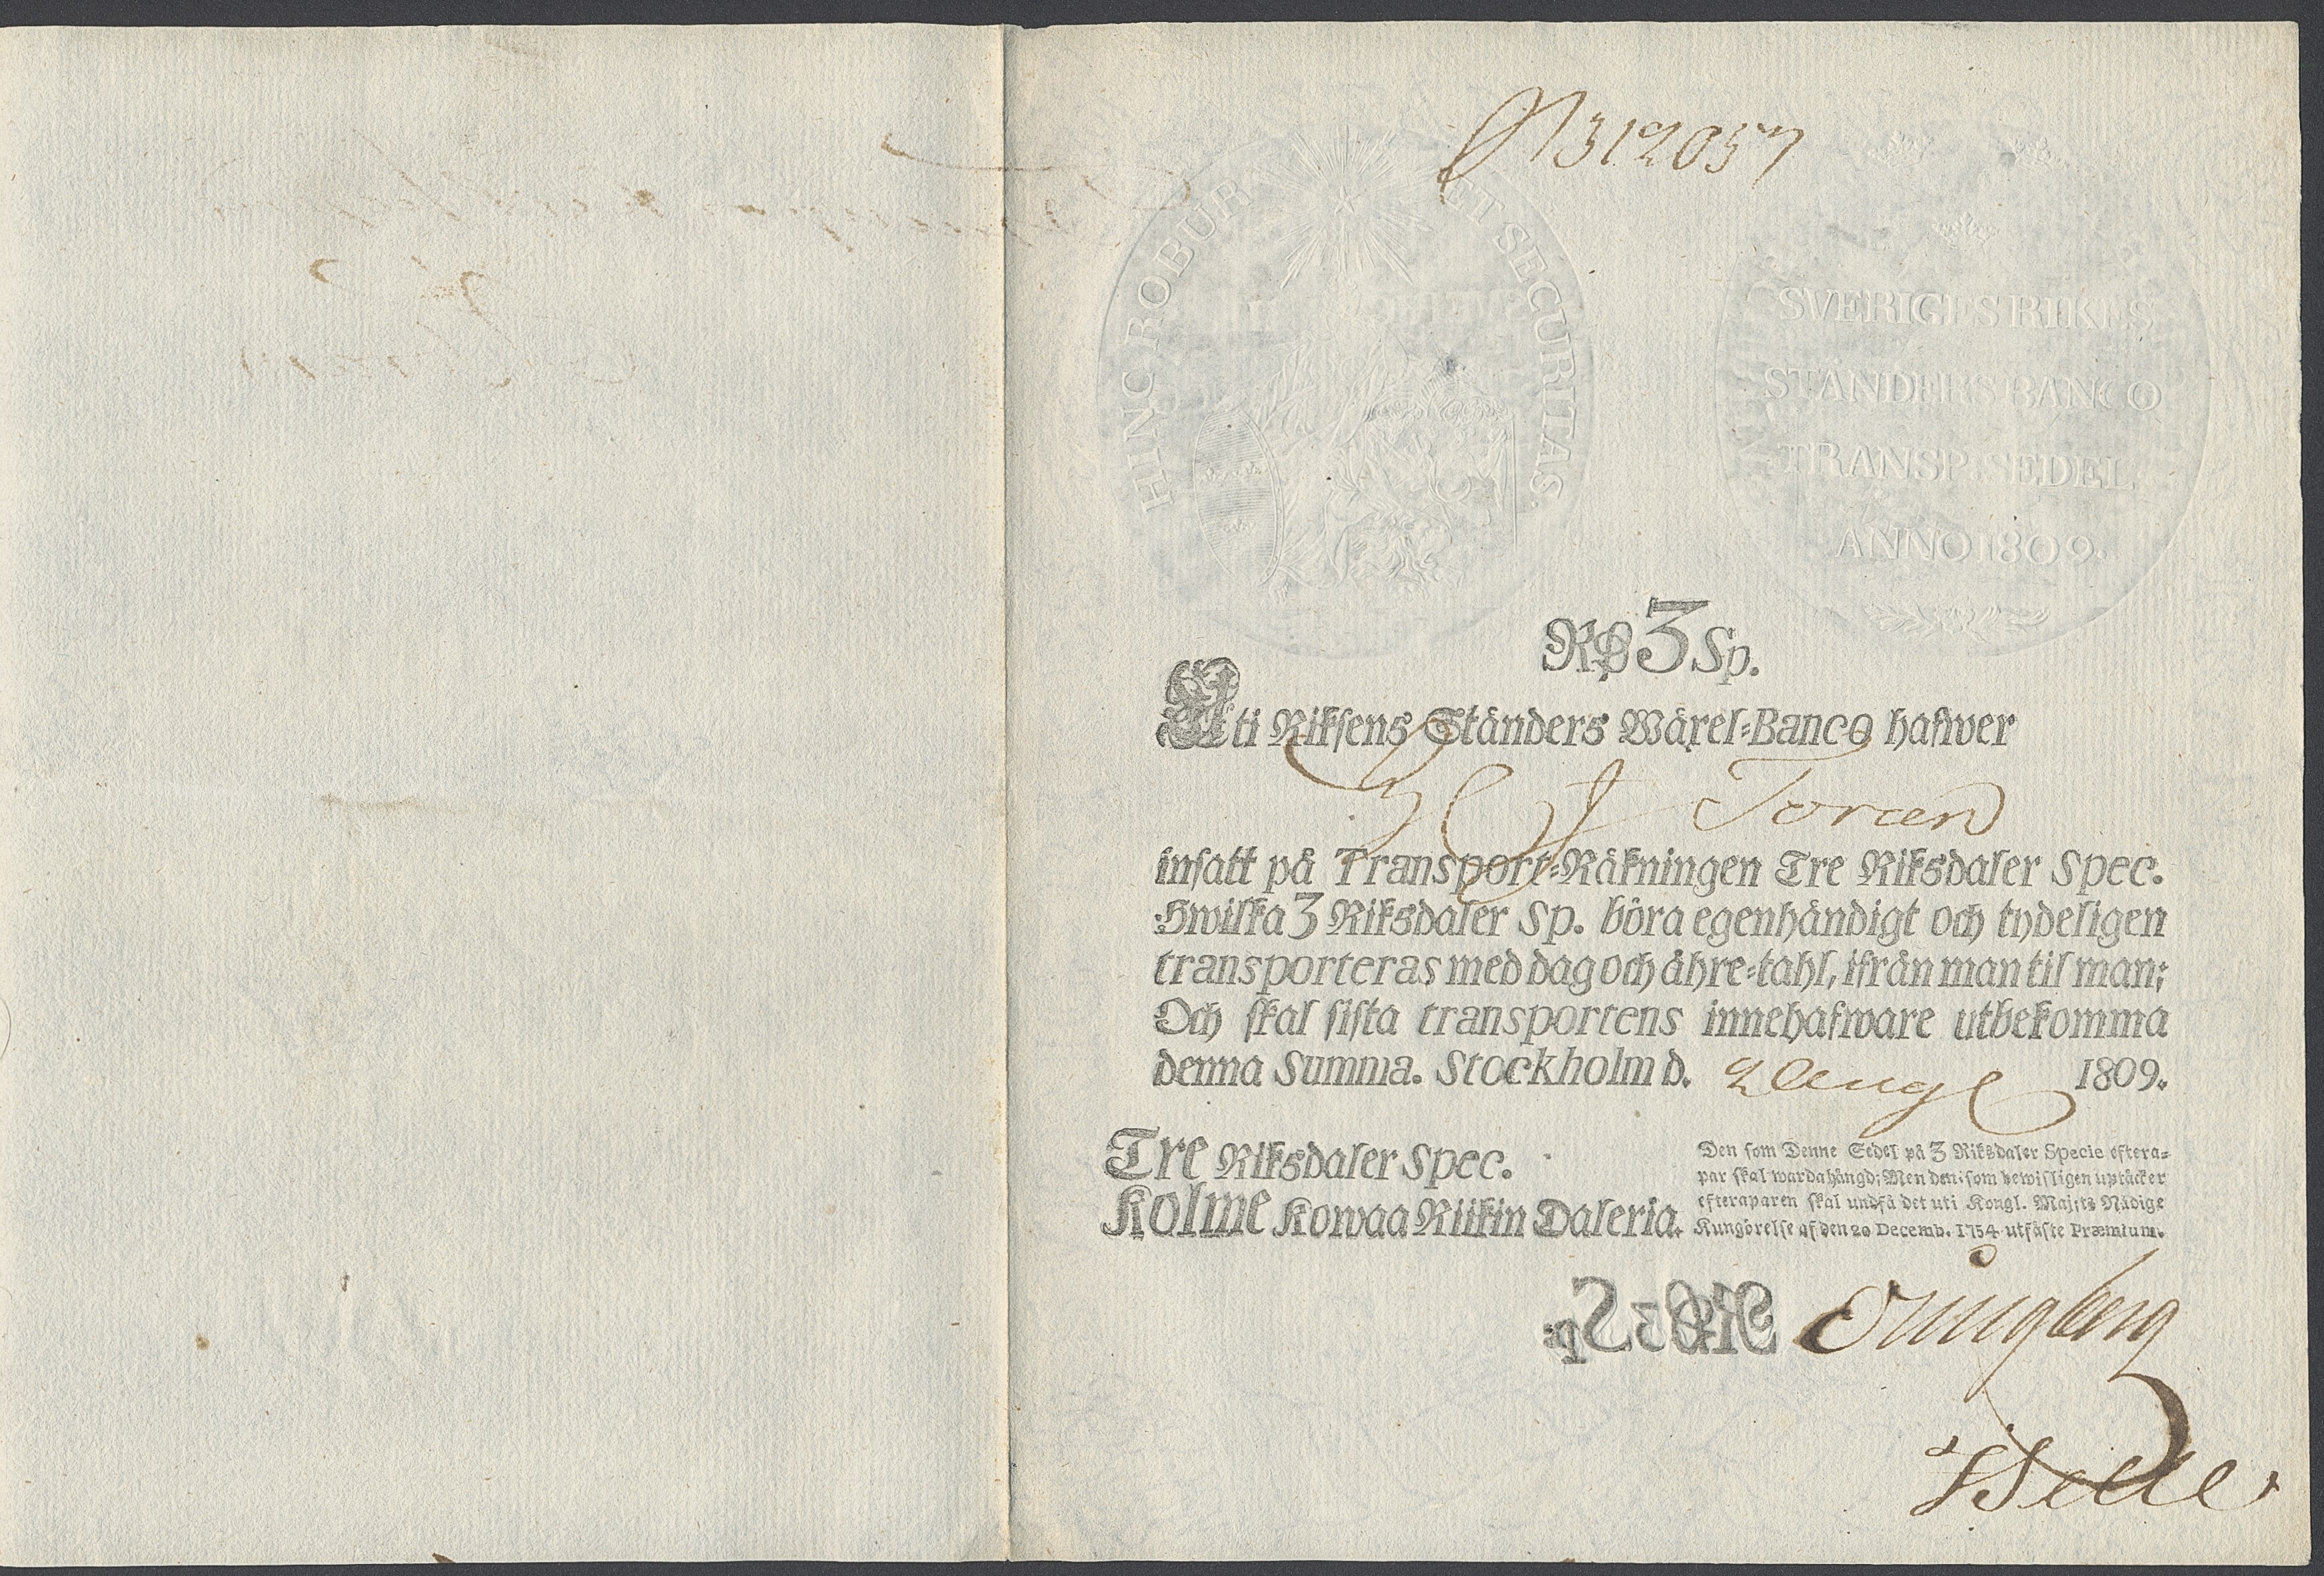 N 312057
HINC ROBUR ET SECURITAS.
SVERIGES RIKES
STÄNDERS BANCO
TRANSP. SEDEL
ANNO 1809.
RD 3 Sp.
Uti Riksens Ständers Wäxel-Banco hafwer
Toreen
insatt på Transport-Räkningen Tre Riksdaler Spec.
Hwilka 3 Riksdaler Sp. böra egenhändigt och tydeligen
transporteras med dag och åhre-tahl, ifrån man til man;
Och skal sista transportens innehafware utbekomma
denna Summa. Stockholm d. 2 Aug 1809.
Tre Riksdaler Spec.
Kolme Kowaa Riikin Daleria.
Den som Denne Sedel på 3 Riksdaler Specie eftera-
par skal warda hängd; Men den som bewisligen uptäcker
efteraparen skal undfå det uti Kongl. Maj:ts Nådige
Kungörelse af den 20 Decemb. 1754 utfäste Præmium.
RD 3 Sp.